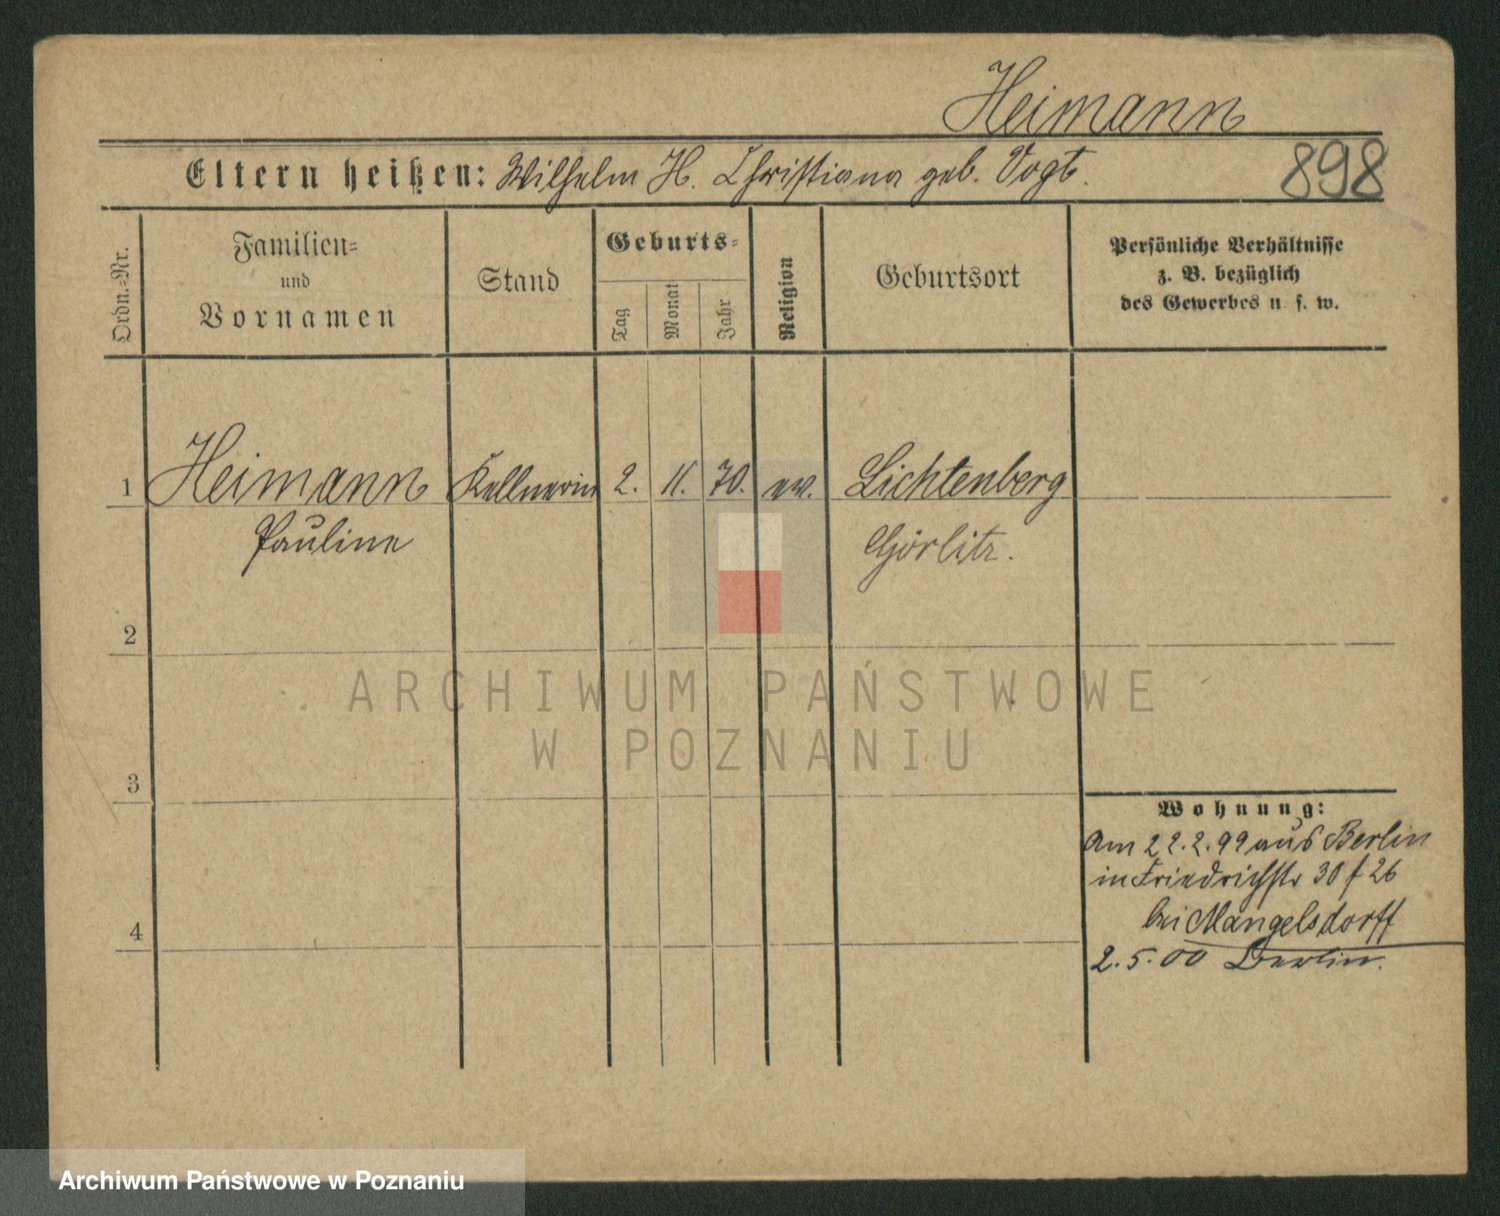 Heimann
Eltern heißen: Wilhelm H. Christiana geb. Vogt.
898
Ordn.-Nr.
Familien-
und
Vornamen
Stand
Geburts-
Tag
Monat
Jahr
Religion
Geburtsort
Persönliche Verhältnisse
z. B. bezüglich
des Gewerbes u. s. w.
1 Heimann Kellnerin 2. 11. 70. ev. Lichtenberg
Pauline Görlitz.
2
3
4
Wohnung:
Am 22.2.99 aus Berlin
in Friedrichstr 30 f 26
bei Mangelsdorff
2.5.00 Berlin.
ARCHIWUM PAŃSTWOWE
W POZNANIU
Archiwum Państwowe w Poznaniu